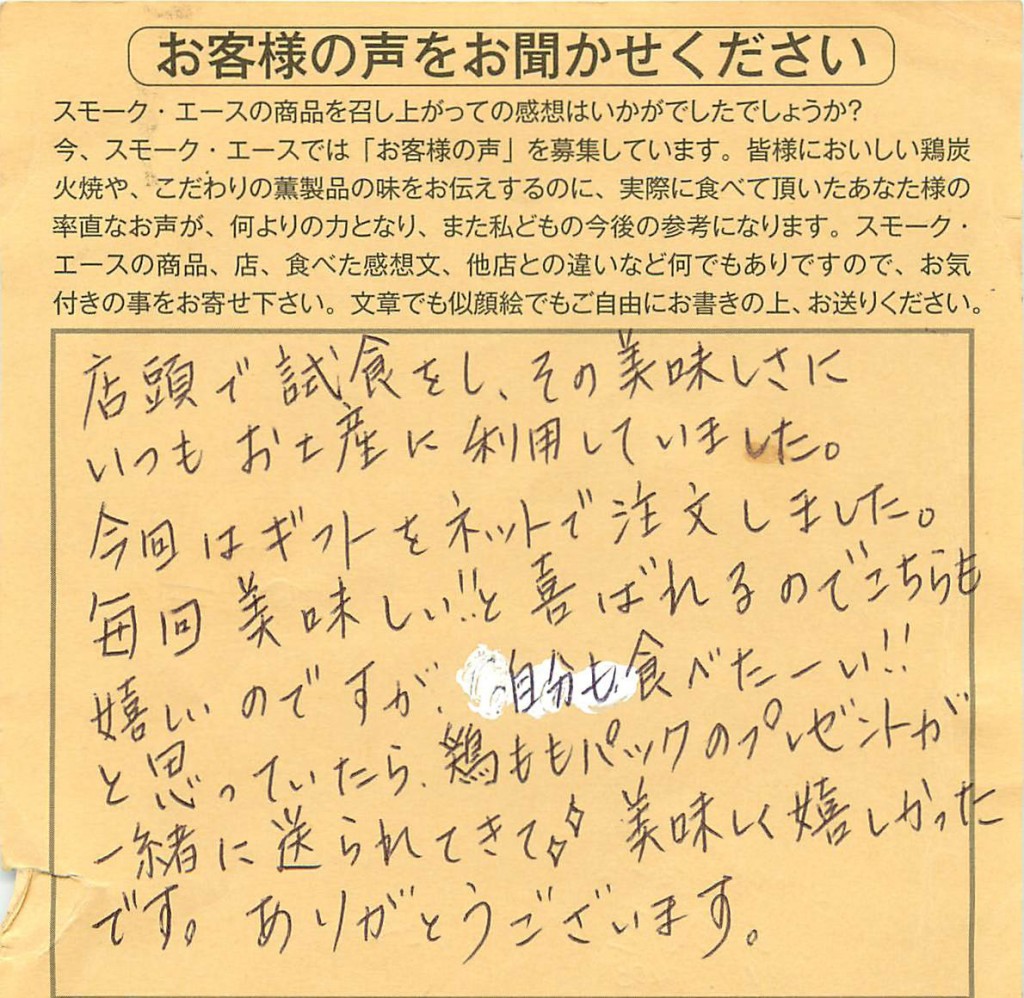 お客様の声をお聞かせください
スモーク・エースの商品を召し上がっての感想はいかがでしたでしょうか?
今、スモーク・エースでは「お客様の声」を募集しています。皆様においしい鶏炭
火焼や、こだわりの薫製品の味をお伝えするのに、実際に食べて頂いたあなた様の
率直なお声が、何よりの力となり、また私どもの今後の参考になります。スモーク・
エースの商品、店、食べた感想文、他店との違いなど何でもありですので、お気
付きの事をお寄せ下さい。文章でも似顔絵でもご自由にお書きの上、お送りください。
店頭で試食をし、その美味しさに
いつもお土産に利用していました。
今回はギフトをネットで注文しました。
毎回美味しい!!と喜ばれるのでこちらも
嬉しいのですが、自分も食べたーい!!
と思っていたら、鶏ももパックのプレゼントが
一緒に送られてきて 美味しく嬉しかった
です。ありがとうございます。